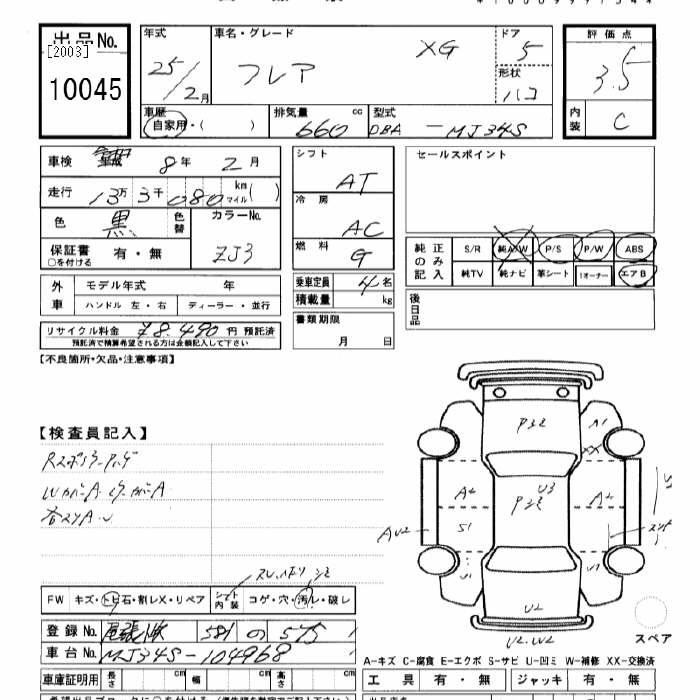 出品No.
[2003]
10045
年式
25/2月
車名・グレード
フレア XG
ドア
5
形状
ハコ
評価点
3.5
内装
C
車歴
自家用・( )
排気量 cc
660
型式
DBA - MJ34S
車検 8年 2月
走行 13万 3千 080 km マイル( )
色 黒 色替
カラーNo.
ZJ3
保証書 有・無
○を付ける
シフト
AT
冷房
AC
燃料
G
セールスポイント
純正のみ記入
S/R 純A/W P/S P/W ABS
純TV 純ナビ 革シート 1オーナー エアB
外車
モデル年式 年
ハンドル 左・右 ディーラー・並行
乗車定員 4名
積載量 kg
後日品
リサイクル料金 ¥8,490 円 預託済
預託済で精算希望される方は金額記入して下さい
書類期限
月 日
【不良箇所・欠品・注意事項】
【検査員記入】
FW キズ・トビ石・割レX・リペア
シート内装 コゲ・穴・汚レ・破レ
登録No. 尾張小牧 581 の 575
車台No. MJ34S-104968
P32
A1
XX
A2
U3
P32
A2
S1
AU2
U1
U1
U2
U2.W2
スペア
A-キズ C-腐食 E-エクボ S-サビ U-凹ミ W-補修 XX-交換済
車庫証明用 長さ cm 幅 cm 高さ cm
工具 有・無 ジャッキ 有・無